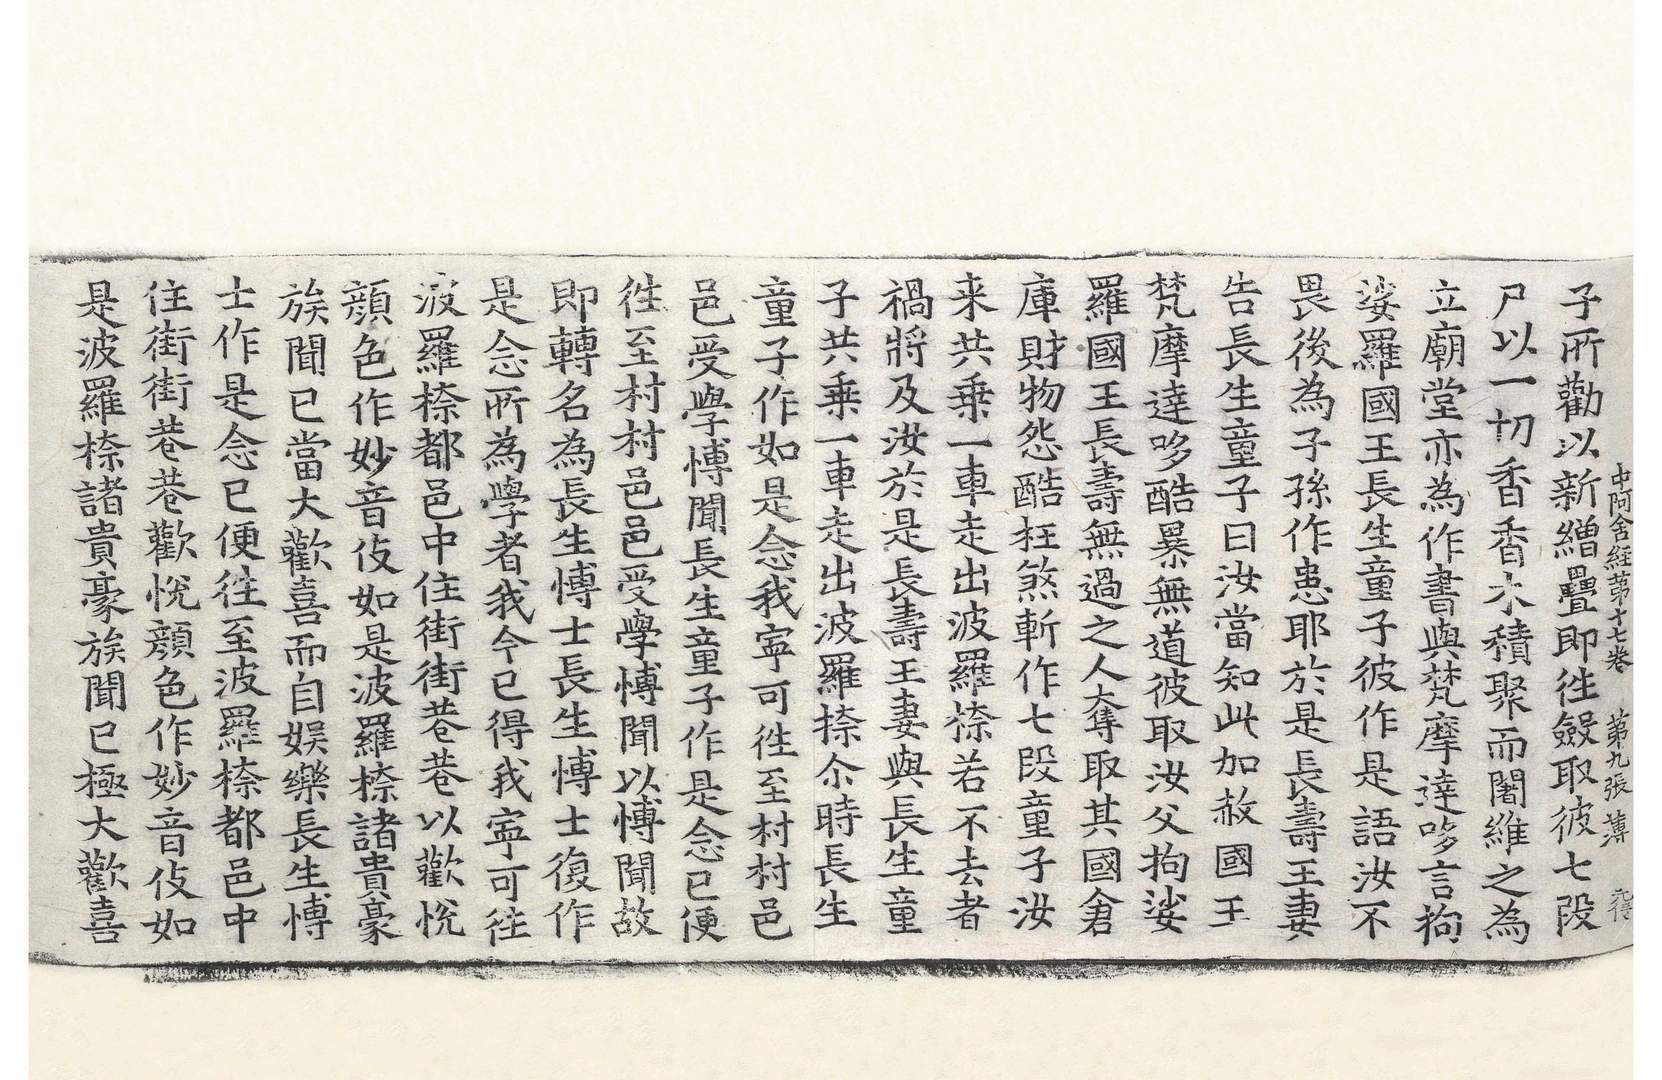 中阿含經第十七卷 第九張 薄
子所勸以新繒疊即往斂取彼七段
尸以一切香香木積聚而闍維之為
立廟堂亦為作書與梵摩達哆言拘
娑羅國王長生童子彼作是語汝不
畏後為子孫作患耶於是長壽王妻
告長生童子曰汝當知此加赦國王
梵摩達哆酷暴無道彼取汝父拘娑
羅國王長壽無過之人奪取其國倉
庫財物怨酷枉煞斬作七段童子汝
来共乗一車走出波羅㮈若不去者
禍將及汝於是長壽王妻與長生童
子共乗一車走出波羅㮈尒時長生
童子作如是念我寧可往至村村邑
邑受學愽聞長生童子作是念已便
往至村村邑邑受學愽聞以愽聞故
即轉名為長生愽士長生愽士復作
是念所為學者我今已得我寧可往
波羅㮈都邑中住街街巷巷以歡悅
顔色作妙音伎如是波羅㮈諸貴豪
族聞已當大歡喜而自娛樂長生愽
士作是念已便往至波羅㮈都邑中
住街街巷巷歡悅顔色作妙音伎如
是波羅㮈諸貴豪族聞已極大歡喜